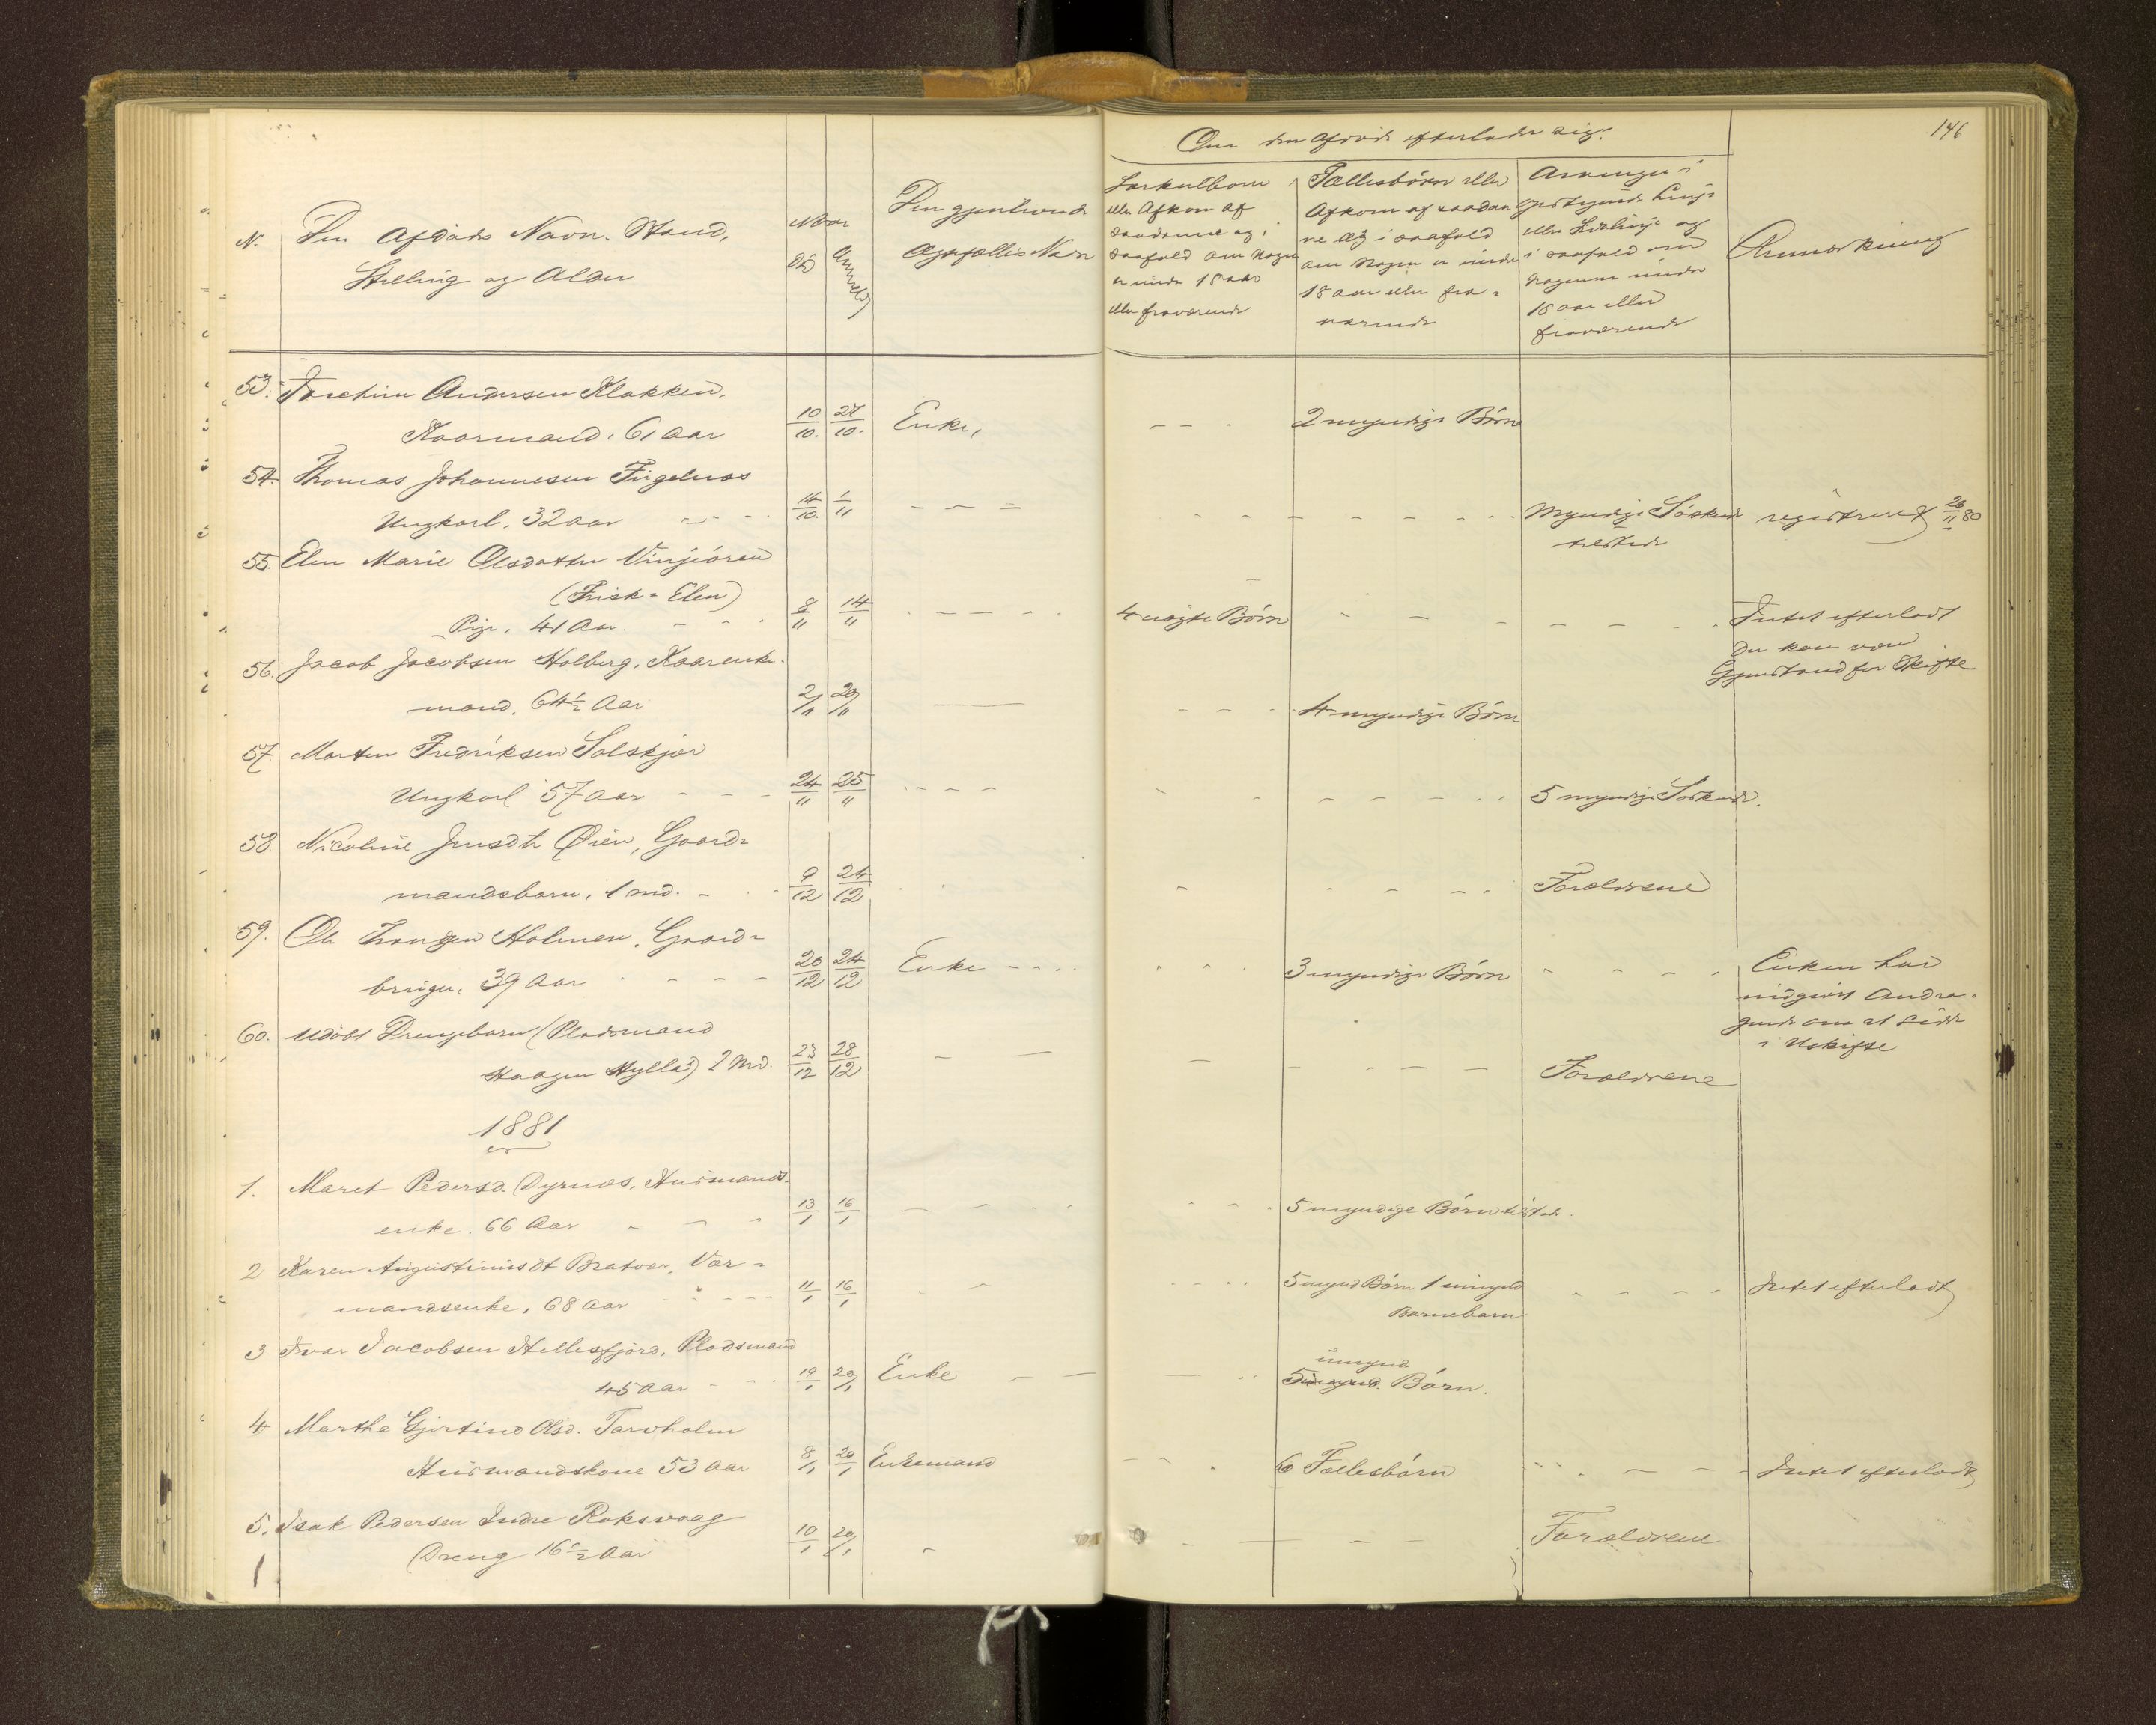 146
Om den afdøde efterlader sig:
N.
Den Afdødes Navn. Stand,
Stilling og Alder
Naar
Død
Anmeldt
Den gjenlevende
Ægtefælles Navn
Særkulbørn
eller Afkom af
saadanne og i
saafald om Nogen
er under 18 aar
eller fraværende
Fællesbørn eller
Afkom af saadan
ne og i saafald
om Nogen er under
18 aar eller fra-
værende
Arvinger i
opstigende Linje
eller Sidelinje og
i saafald om
nogen er under
18 aar eller
fraværende
Anmærkning
53. Joachim Andersen Klakken,
Kaarmand, 61 Aar 10/10. 27/10. Enke, - - - 2 myndige Børn
54. Thomas Johannesen Fugelnæs
Ungkarl, 32 aar - - - 14/10. 1/11 - - - Myndige Søskende registreret 26/11 80
tilstede
55. Elen Marie Olsdatter Vinjeøren
(Frisk-Elen)
Pige, 41 Aar - - - 8/11 14/11 - - - 4 uægte Børn - - - Intet efterladt
der kan være
Gjenstand for Skifte
56. Jacob Jacobsen Holberg, Kaarenke-
mand, 64½ Aar 2/11 20/11 - - - 4 myndige Børn
57. Morten Fredriksen Solskjær
Ungkarl 57 Aar - - - 24/11 25/11 - - - 5 myndige Søskende.
58. Nicoline Jensdtr Øien, Gaard-
mandsbarn, 1 md. - - - 9/12 24/12 - - - Forældrene
59. Ole Holmen, Gaard-
bruger, 39 Aar - - - 20/12 24/12 Enke - - - 3 myndige Børn - - - Enken har
indgivet Andra-
gende om at sidde
i Uskifte
60. Udøbt Drengebarn (Pladsmand
Haagen Hylla) 2 Md. 23/12 28/12 - - - Forældrene
1881
1. Maret Pedersd. Dyrnæs, Husmands-
enke. 66 Aar - - - 13/1 16/1 - - - 5 myndige Børn tilstede.
2 Karen Augustinusdt Bratvær, Vær-
mandsenke, 68 Aar - - - 11/1 16/1 - - - 5 mynd Børn 1 umynd - - - Intet efterladt
Barnebarn
3 Ivar Jacobsen Hellesfjord, Pladsmand
umynd.
45 Aar - - - 19/1 20/1 Enke - - - 5 Børn.
4 Martha Gjertine Olsd. Tarvholm
Husmandskone 53 Aar 8/1 20/1 Enkemand - - - 6 Fællesbørn - - - Intet efterladt
5. Isak Pedersen Indre Roksvaag
Dreng 16½ Aar 10/1 20/1 - - - Forældrene